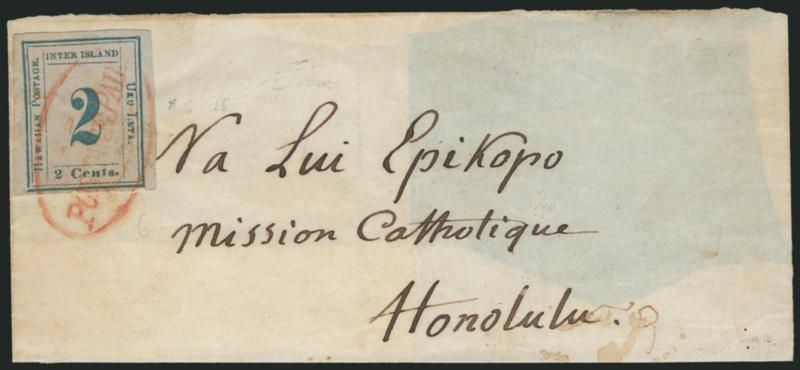 INTER ISLAND
HAWAIIAN POSTAGE.
2
UKU LETA.
2 Cents.
PAID
Na Lui Epikopo
Mission Catholique
Honolulu.